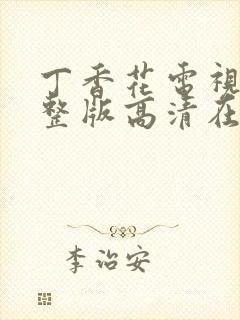 丁香花電視
整版高清在
李治安